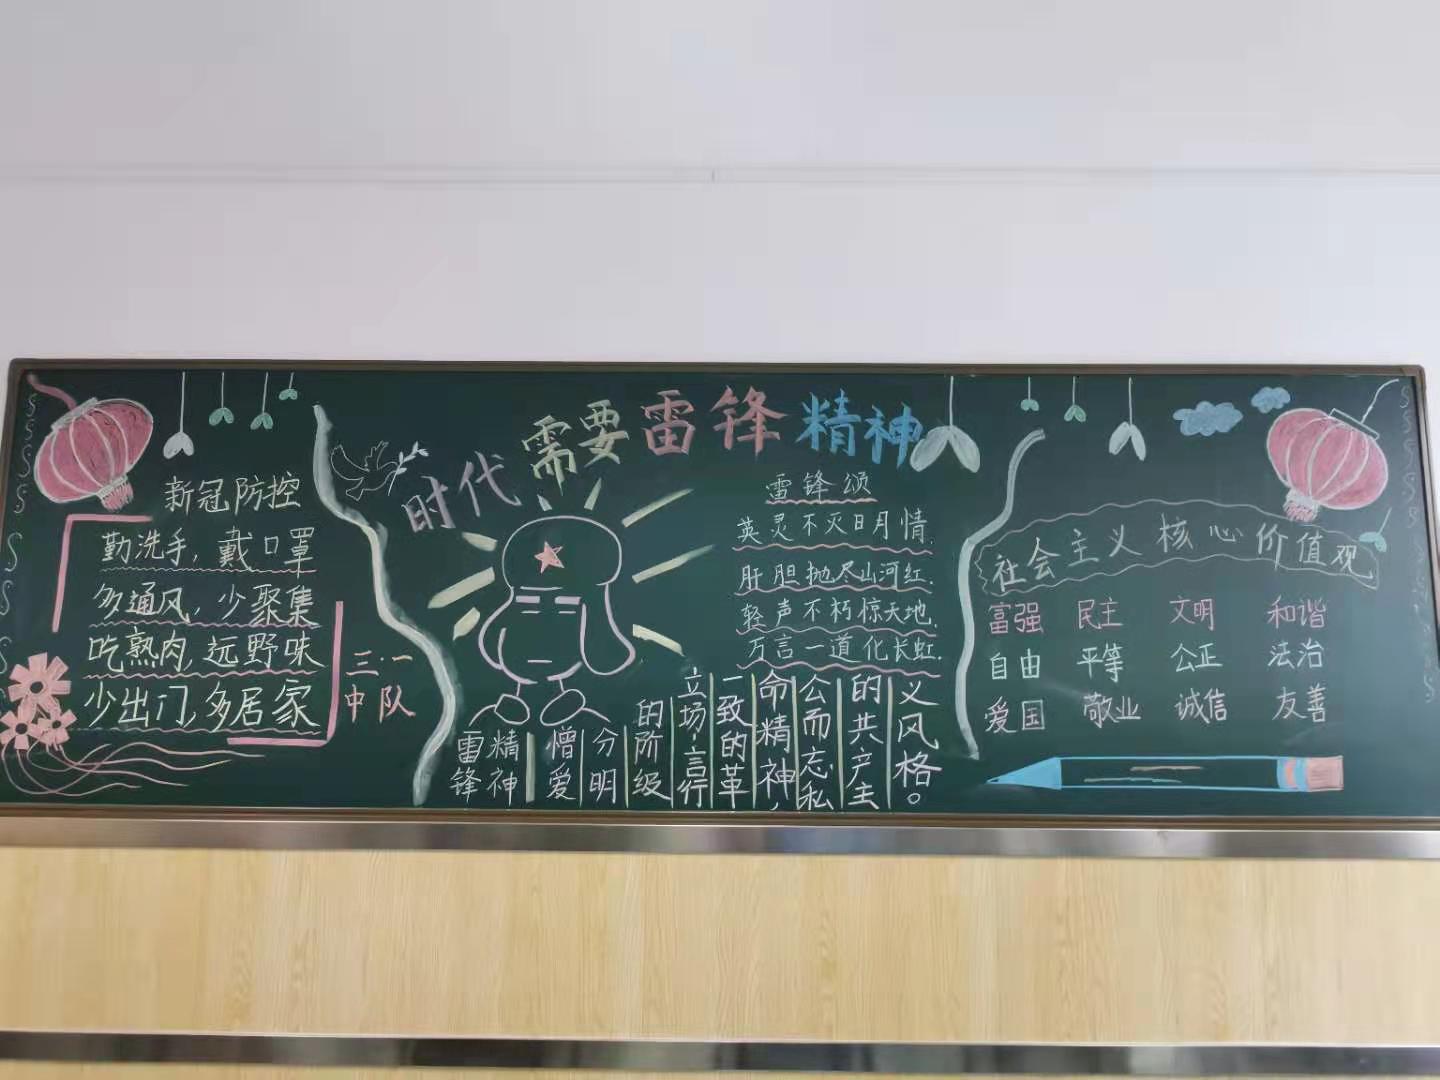 时代需要雷锋精神
新冠防控
勤洗手,戴口罩
多通风,少聚集
吃熟肉,远野味
少出门,多居家
三·一
中队
雷锋颂
英灵不灭日月情.
肝胆抛尽山河红.
轻声不朽惊天地.
万言一道化长虹.
雷锋
精神
憎爱
分明
的阶级
立场、言行
一致的革
命精神,
公而忘私
的共产主
义风格。
社会主义核心价值观
富强 民主 文明 和谐
自由 平等 公正 法治
爱国 敬业 诚信 友善